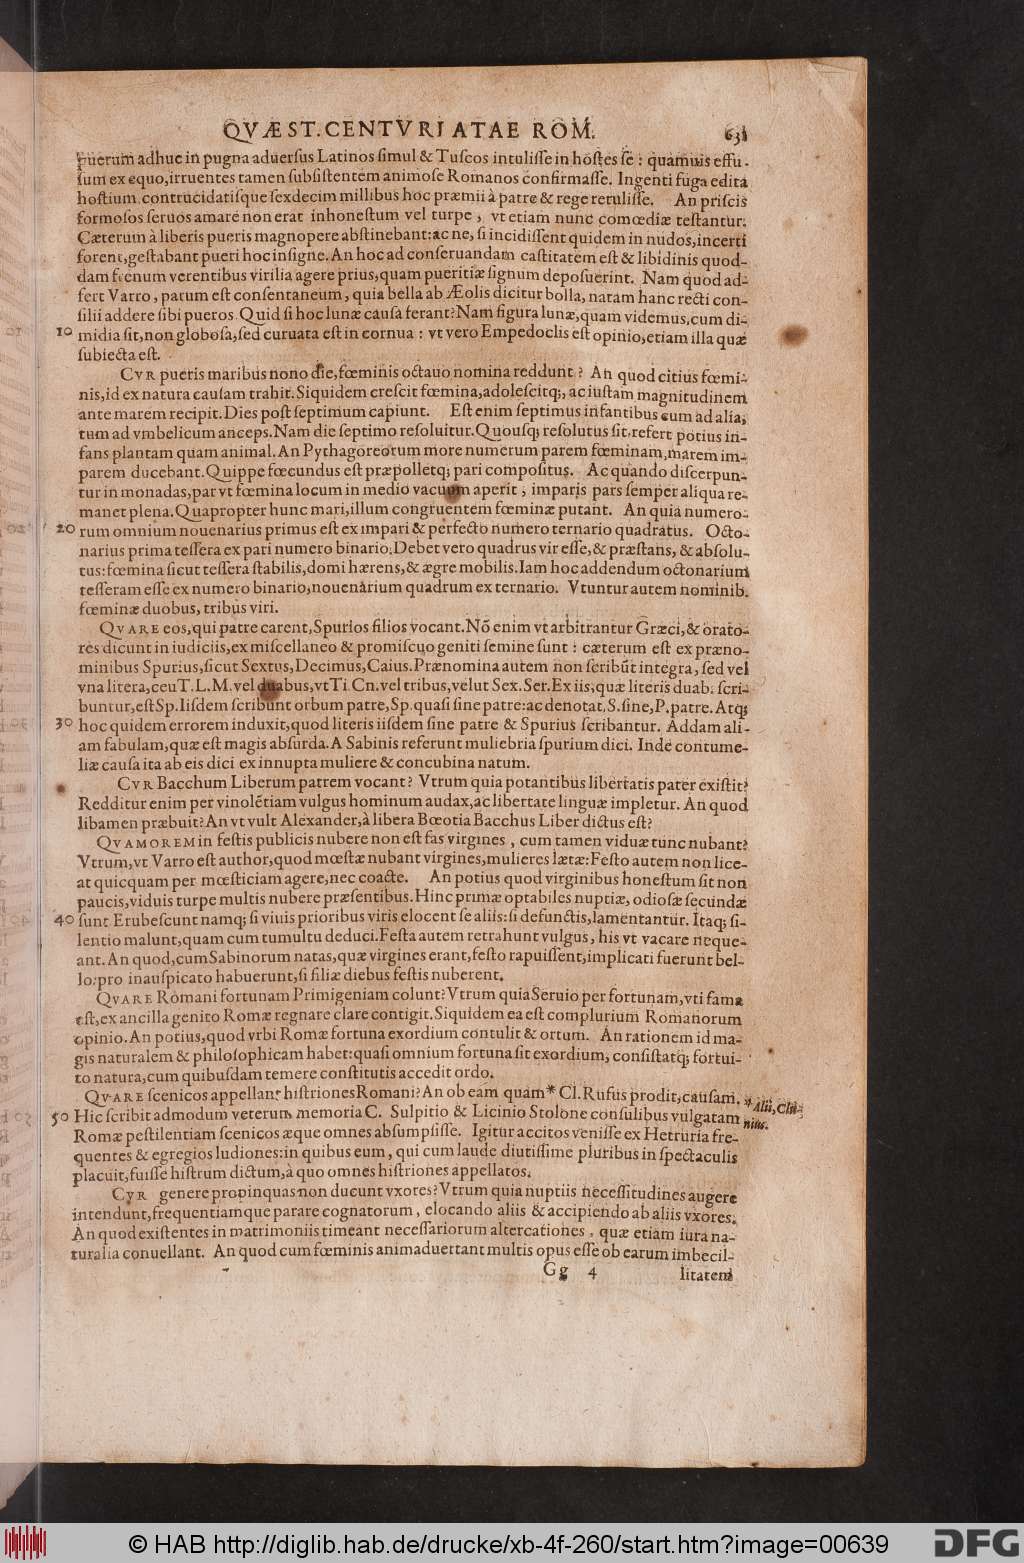 QVÆST. CENTVRIATAE ROM. 631
puerum adhuc in pugna aduersus Latinos simul & Tuscos intulisse in hostes se : quamuis effu-
sum ex equo, irruentes tamen subsistentem animose Romanos confirmasse. Ingenti fuga edita
hostium contrucidatisque sexdecim millibus hoc præmii à patre & rege retulisse. An priscis
formosos seruos amare non erat inhonestum vel turpe, vt etiam nunc comœdiæ testantur.
Cæterum à liberis pueris magnopere abstinebant: ac ne, si incidissent quidem in nudos, incerti
forent, gestabant pueri hoc insigne. An hoc ad conseruandam castitatem est & libidinis quod-
dam frenum verentibus virilia agere prius, quam pueritiæ signum deposuerint. Nam quod ad-
fert Varro, parum est consentaneum, quia bella ab Æolis dicitur bolla, natam hanc recti con-
silii addere sibi pueros. Quid si hoc lunæ causa ferant? Nam figura lunæ, quam videmus, cum di-
10 midia sit, non globosa, sed curuata est in cornua : vt vero Empedoclis est opinio, etiam illa quæ
subiecta est.
CVR pueris maribus nono die, fœminis octauo nomina reddunt ? An quod citius fœmi-
nis, id ex natura causam trahit. Siquidem crescit fœmina, adolescitq;, ac iustam magnitudinem
ante marem recipit. Dies post septimum capiunt. Est enim septimus infantibus cum ad alia,
tum ad vmbelicum anceps. Nam die septimo resoluitur. Quousq; resolutus sit, refert potius in-
fans plantam quam animal. An Pythagoreorum more numerum parem fœminam, marem im-
parem ducebant. Quippe fœcundus est præpolletq; pari compositus. Ac quando discerpun-
tur in monadas, par vt fœmina locum in medio vacuum aperit, imparis pars semper aliqua re-
manet plena. Quapropter hunc mari, illum congruentem fœminæ putant. An quia numero-
20 rum omnium nouenarius primus est ex impari & perfecto numero ternario quadratus. Octo-
narius prima tessera ex pari numero binario. Debet vero quadrus vir esse, & præstans, & absolu-
tus: fœmina sicut tessera stabilis, domi hærens, & ægre mobilis. Iam hoc addendum octonarium
tesseram esse ex numero binario, nouenarium quadrum ex ternario. Vtuntur autem nominib.
fœminæ duobus, tribus viri.
QVARE eos, qui patre carent, Spurios filios vocant. Nõ enim vt arbitrantur Græci, & orato-
res dicunt in iudiciis, ex miscellaneo & promiscuo geniti semine sunt : cæterum est ex præno-
minibus Spurius, sicut Sextus, Decimus, Caius. Prænomina autem non scribũt integra, sed vel
vna litera, ceu T. L. M. vel duabus, vt Ti Cn. vel tribus, velut Sex. Ser. Ex iis, quæ literis duab. scri-
buntur, est Sp. Iisdem scribunt orbum patre, Sp. quasi sine patre: ac denotat, S. sine, P. patre. Atq;
30 hoc quidem errorem induxit, quod literis iisdem sine patre & Spurius scribantur. Addam ali-
am fabulam, quæ est magis absurda. A Sabinis referunt muliebria spurium dici. Inde contume-
liæ causa ita ab eis dici ex innupta muliere & concubina natum.
CVR Bacchum Liberum patrem vocant? Vtrum quia potantibus libertatis pater existit?
Redditur enim per vinolẽtiam vulgus hominum audax, ac libertate linguæ impletur. An quod
libamen præbuit? An vt vult Alexander, à libera Bœotia Bacchus Liber dictus est?
QVAMOREM in festis publicis nubere non est fas virgines, cum tamen viduæ tunc nubant?
Vtrum, vt Varro est author, quod mœstæ nubant virgines, mulieres lætæ: Festo autem non lice-
at quicquam per mœsticiam agere, nec coacte. An potius quod virginibus honestum sit non
paucis, viduis turpe multis nubere præsentibus. Hinc primæ optabiles nuptiæ, odiosæ secundæ
40 sunt Erubescunt namq; si viuis prioribus viris elocent se aliis: si defunctis, lamentantur. Itaq; si-
lentio malunt, quam cum tumultu deduci. Festa autem retrahunt vulgus, his vt vacare neque-
ant. An quod, cum Sabinorum natas, quæ virgines erant, festo rapuissent, implicati fuerunt bel-
lo: pro inauspicato habuerunt, si filiæ diebus festis nuberent.
QVARE Romani fortunam Primigeniam colunt? Vtrum quia Seruio per fortunam, vti fama
est, ex ancilla genito Romæ regnare clare contigit. Siquidem ea est complurium Romanorum
opinio. An potius, quod vrbi Romæ fortuna exordium contulit & ortum. An rationem id ma-
gis naturalem & philosophicam habet: quasi omnium fortuna sit exordium, consistatq; fortui-
to natura, cum quibusdam temere constitutis accedit ordo.
QVARE scenicos appellant histriones Romani? An ob eam quam* Cl. Rufus prodit, causam. * Alii, Clu-
50 Hic scribit admodum veterum memoria C. Sulpitio & Licinio Stolone consulibus vulgatam nius.
Romæ pestilentiam scenicos æque omnes absumpsisse. Igitur accitos venisse ex Hetruria fre-
quentes & egregios ludiones: in quibus eum, qui cum laude diutissime pluribus in spectaculis
placuit, fuisse histrum dictum, à quo omnes histriones appellatos.
CVR genere propinquas non ducunt vxores? Vtrum quia nuptiis necessitudines augere
intendunt, frequentiamque parare cognatorum, elocando aliis & accipiendo ab aliis vxores.
An quod existentes in matrimoniis timeant necessariorum altercationes, quæ etiam iura na-
turalia conuellant. An quod cum fœminis animaduertant multis opus esse ob earum imbecil-
Gg 4 litatem
© HAB http://diglib.hab.de/drucke/xb-4f-260/start.htm?image=00639 DFG